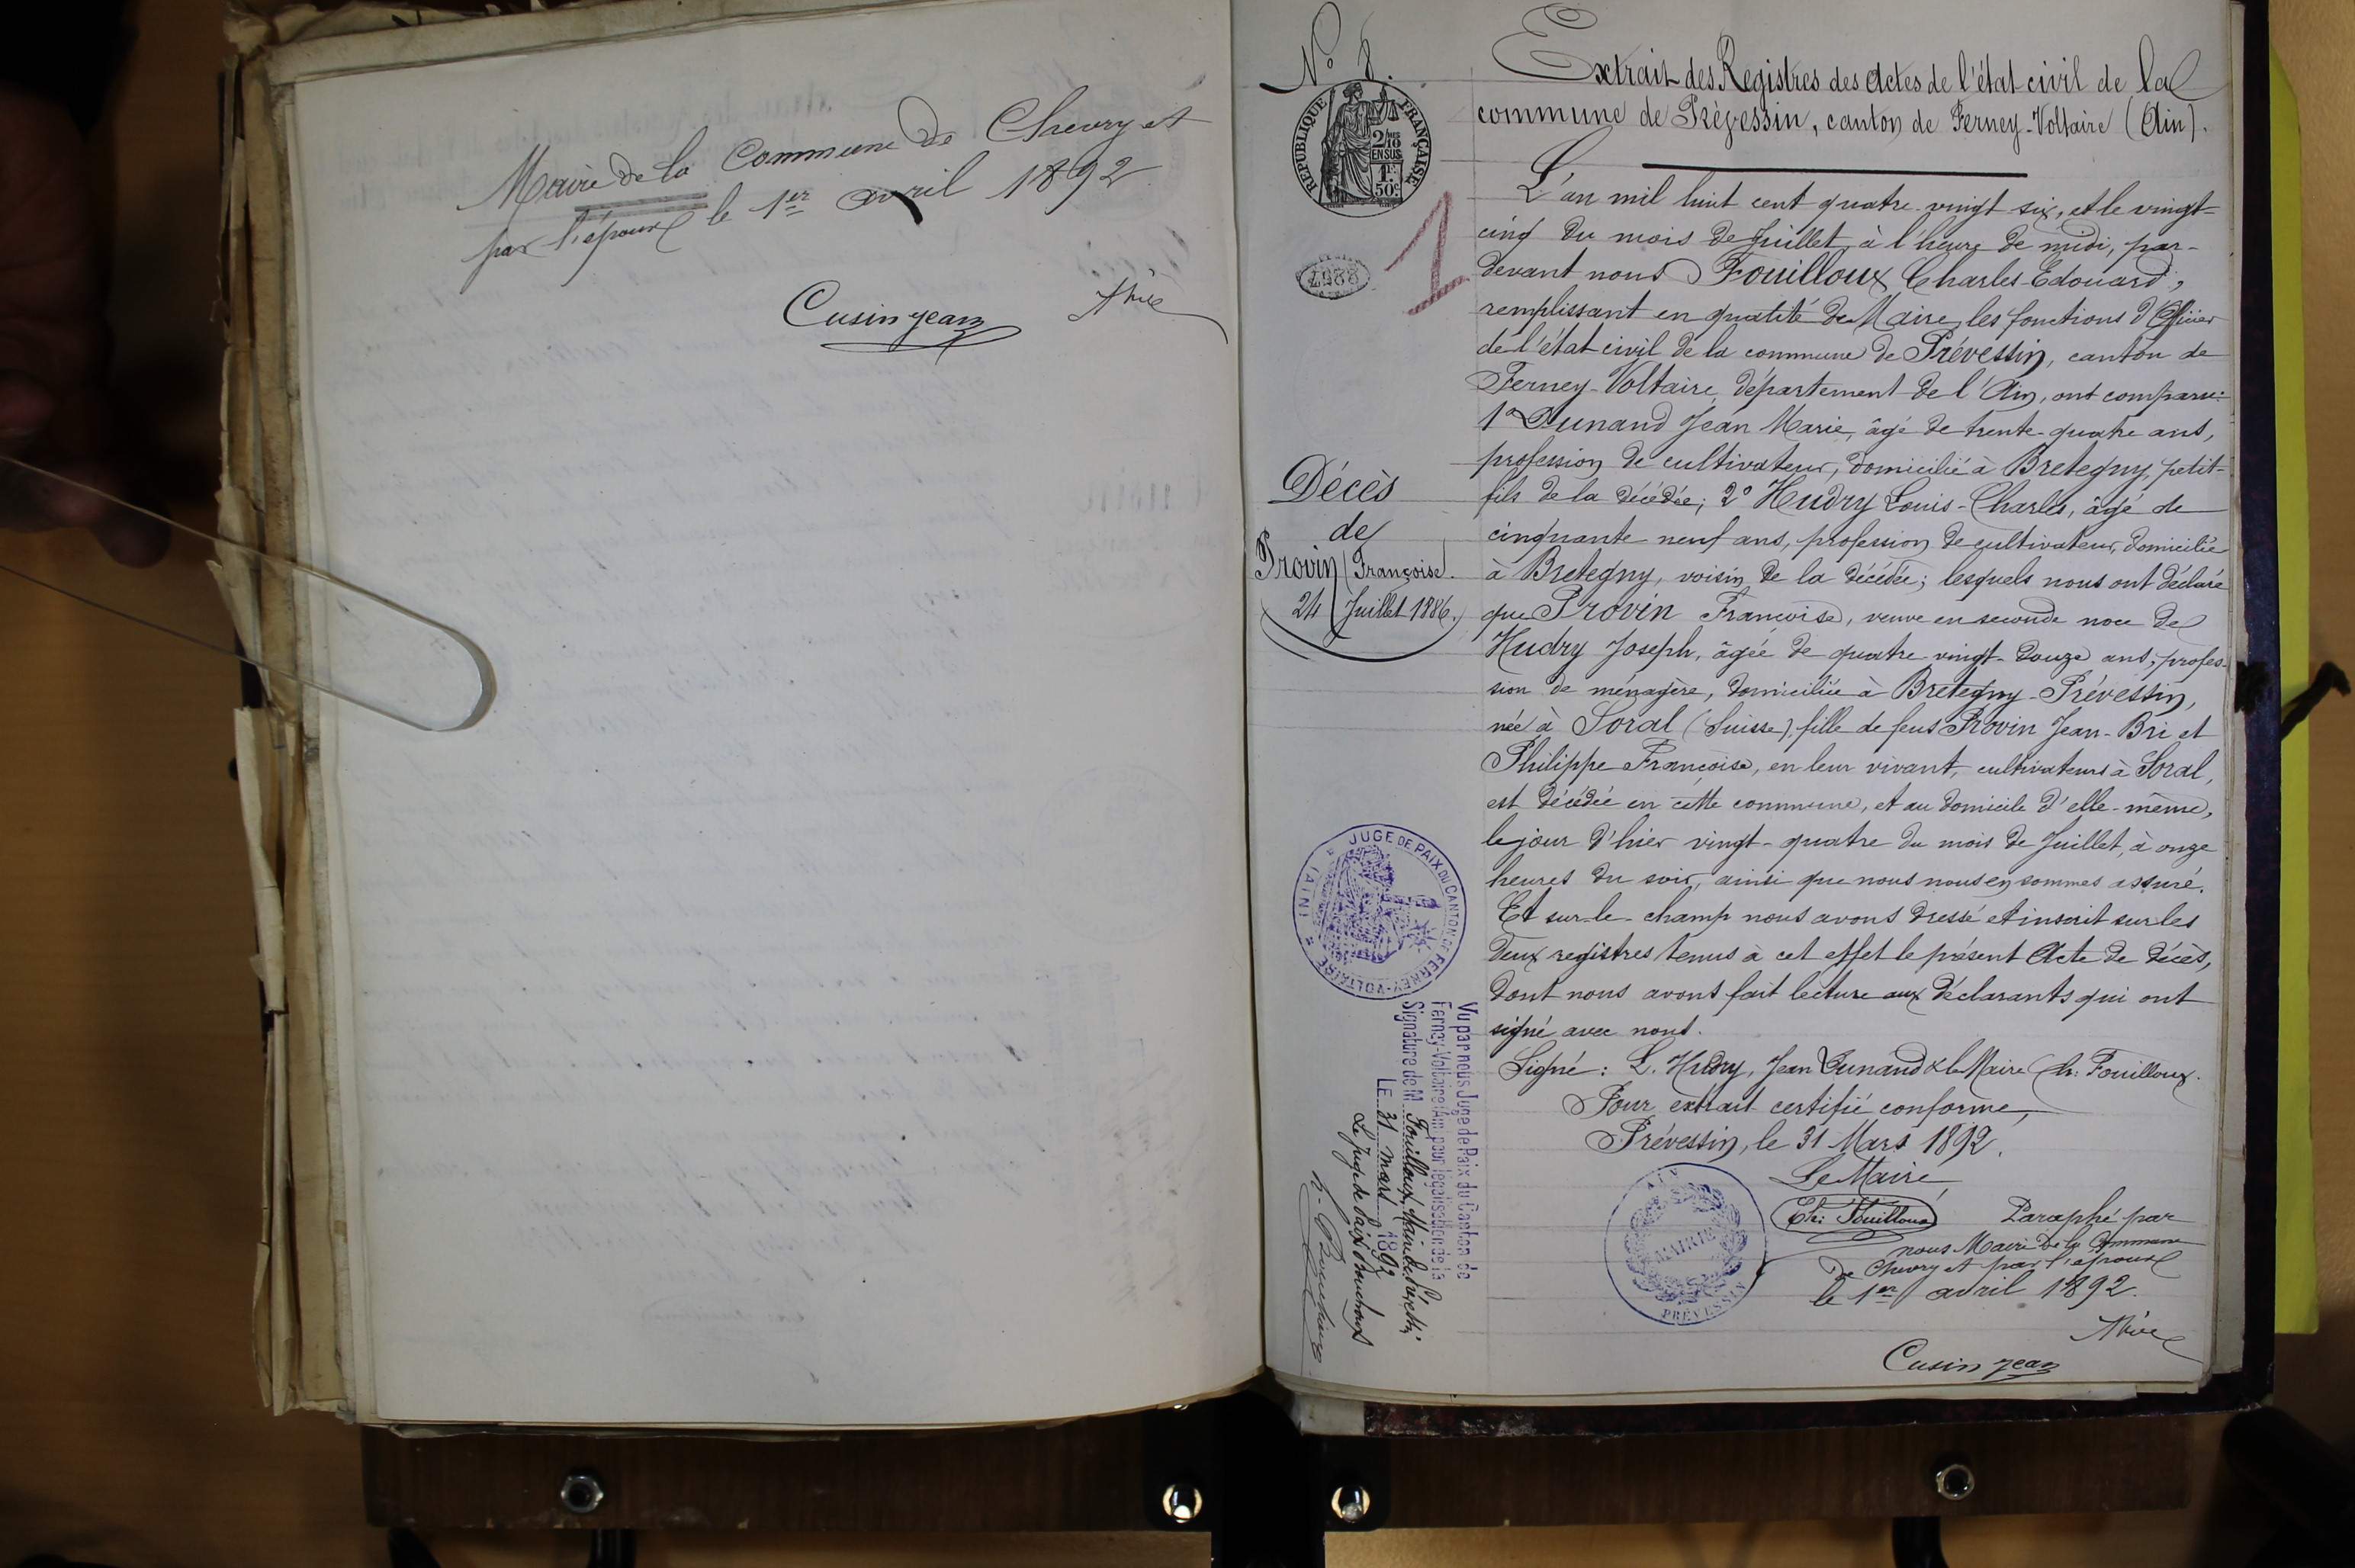 Maire de la Commune de Chevry et
par l'époux le 1er avril 1892
Cusin jean
N° 8.
REPUBLIQUE FRANÇAISE
2/10 EN SUS
1F. 50c.
4988
1
Extrait des Registres des Actes de l'état civil de la
commune de Prévessin, canton de Ferney-Voltaire (Ain).
L'an mil huit cent quatre-vingt six, et le vingt-
cinq du mois de Juillet, à l'heure de midi, par-
devant nous Fouilloux Charles-Edouard,
remplissant en qualité de Maire, les fonctions d'Officier
de l'état civil de la commune de Prévessin, canton de
Ferney-Voltaire, département de l'Ain, ont comparu:
1° Dunand Jean Marie, âgé de trente-quatre ans,
profession de cultivateur, domicilié à Bretegny, petit-
fils de la décédée; 2° Hudry Louis-Charles, âgé de
cinquante neuf ans, profession de cultivateur, domicilié
à Bretegny, voisin de la décédée; lesquels nous ont déclaré
que Provin Françoise, veuve en seconde noce de
Hudry Joseph, âgée de quatre-vingt-douze ans, profes-
sion de ménagère, domiciliée à Bretegny-Prévessin,
née à Soral (Suisse), fille de feus Provin Jean-Bri et
Philippe Françoise, en leur vivant, cultivateurs à Soral,
est décédée en cette commune, et au domicile d'elle-même,
le jour d'hier vingt-quatre du mois de Juillet, à onze
heures du soir, ainsi que nous nous en sommes assuré.
Et sur-le-champ nous avons dressé et inscrit sur les
deux registres tenus à cet effet le présent Acte de décès,
dont nous avons fait lecture aux déclarants qui ont
signé avec nous.
Signé: L. Hudry, Jean Dunand & le Maire Ch: Fouilloux.
Pour extrait certifié conforme,
Prévessin, le 31 Mars 1892.
Le Maire,
Ch: Fouilloux
Paraphé par
nous Maire de la Commune
de Chevry et par l'époux
le 1er avril 1892.
Cusin jean
Décès
de
Provin Françoise.
24 Juillet 1886.
JUGE DE PAIX DU CANTON DE FERNEY-VOLTAIRE (AIN)
Vu par nous Juge de Paix du Canton de
Ferney-Voltaire (Ain) pour légalisation de la
Signature de M. Fouilloux, Maire de Prévessin
LE 31 mars 1892
Le Juge de Paix
MAIRIE
PRÉVESSIN
AIN